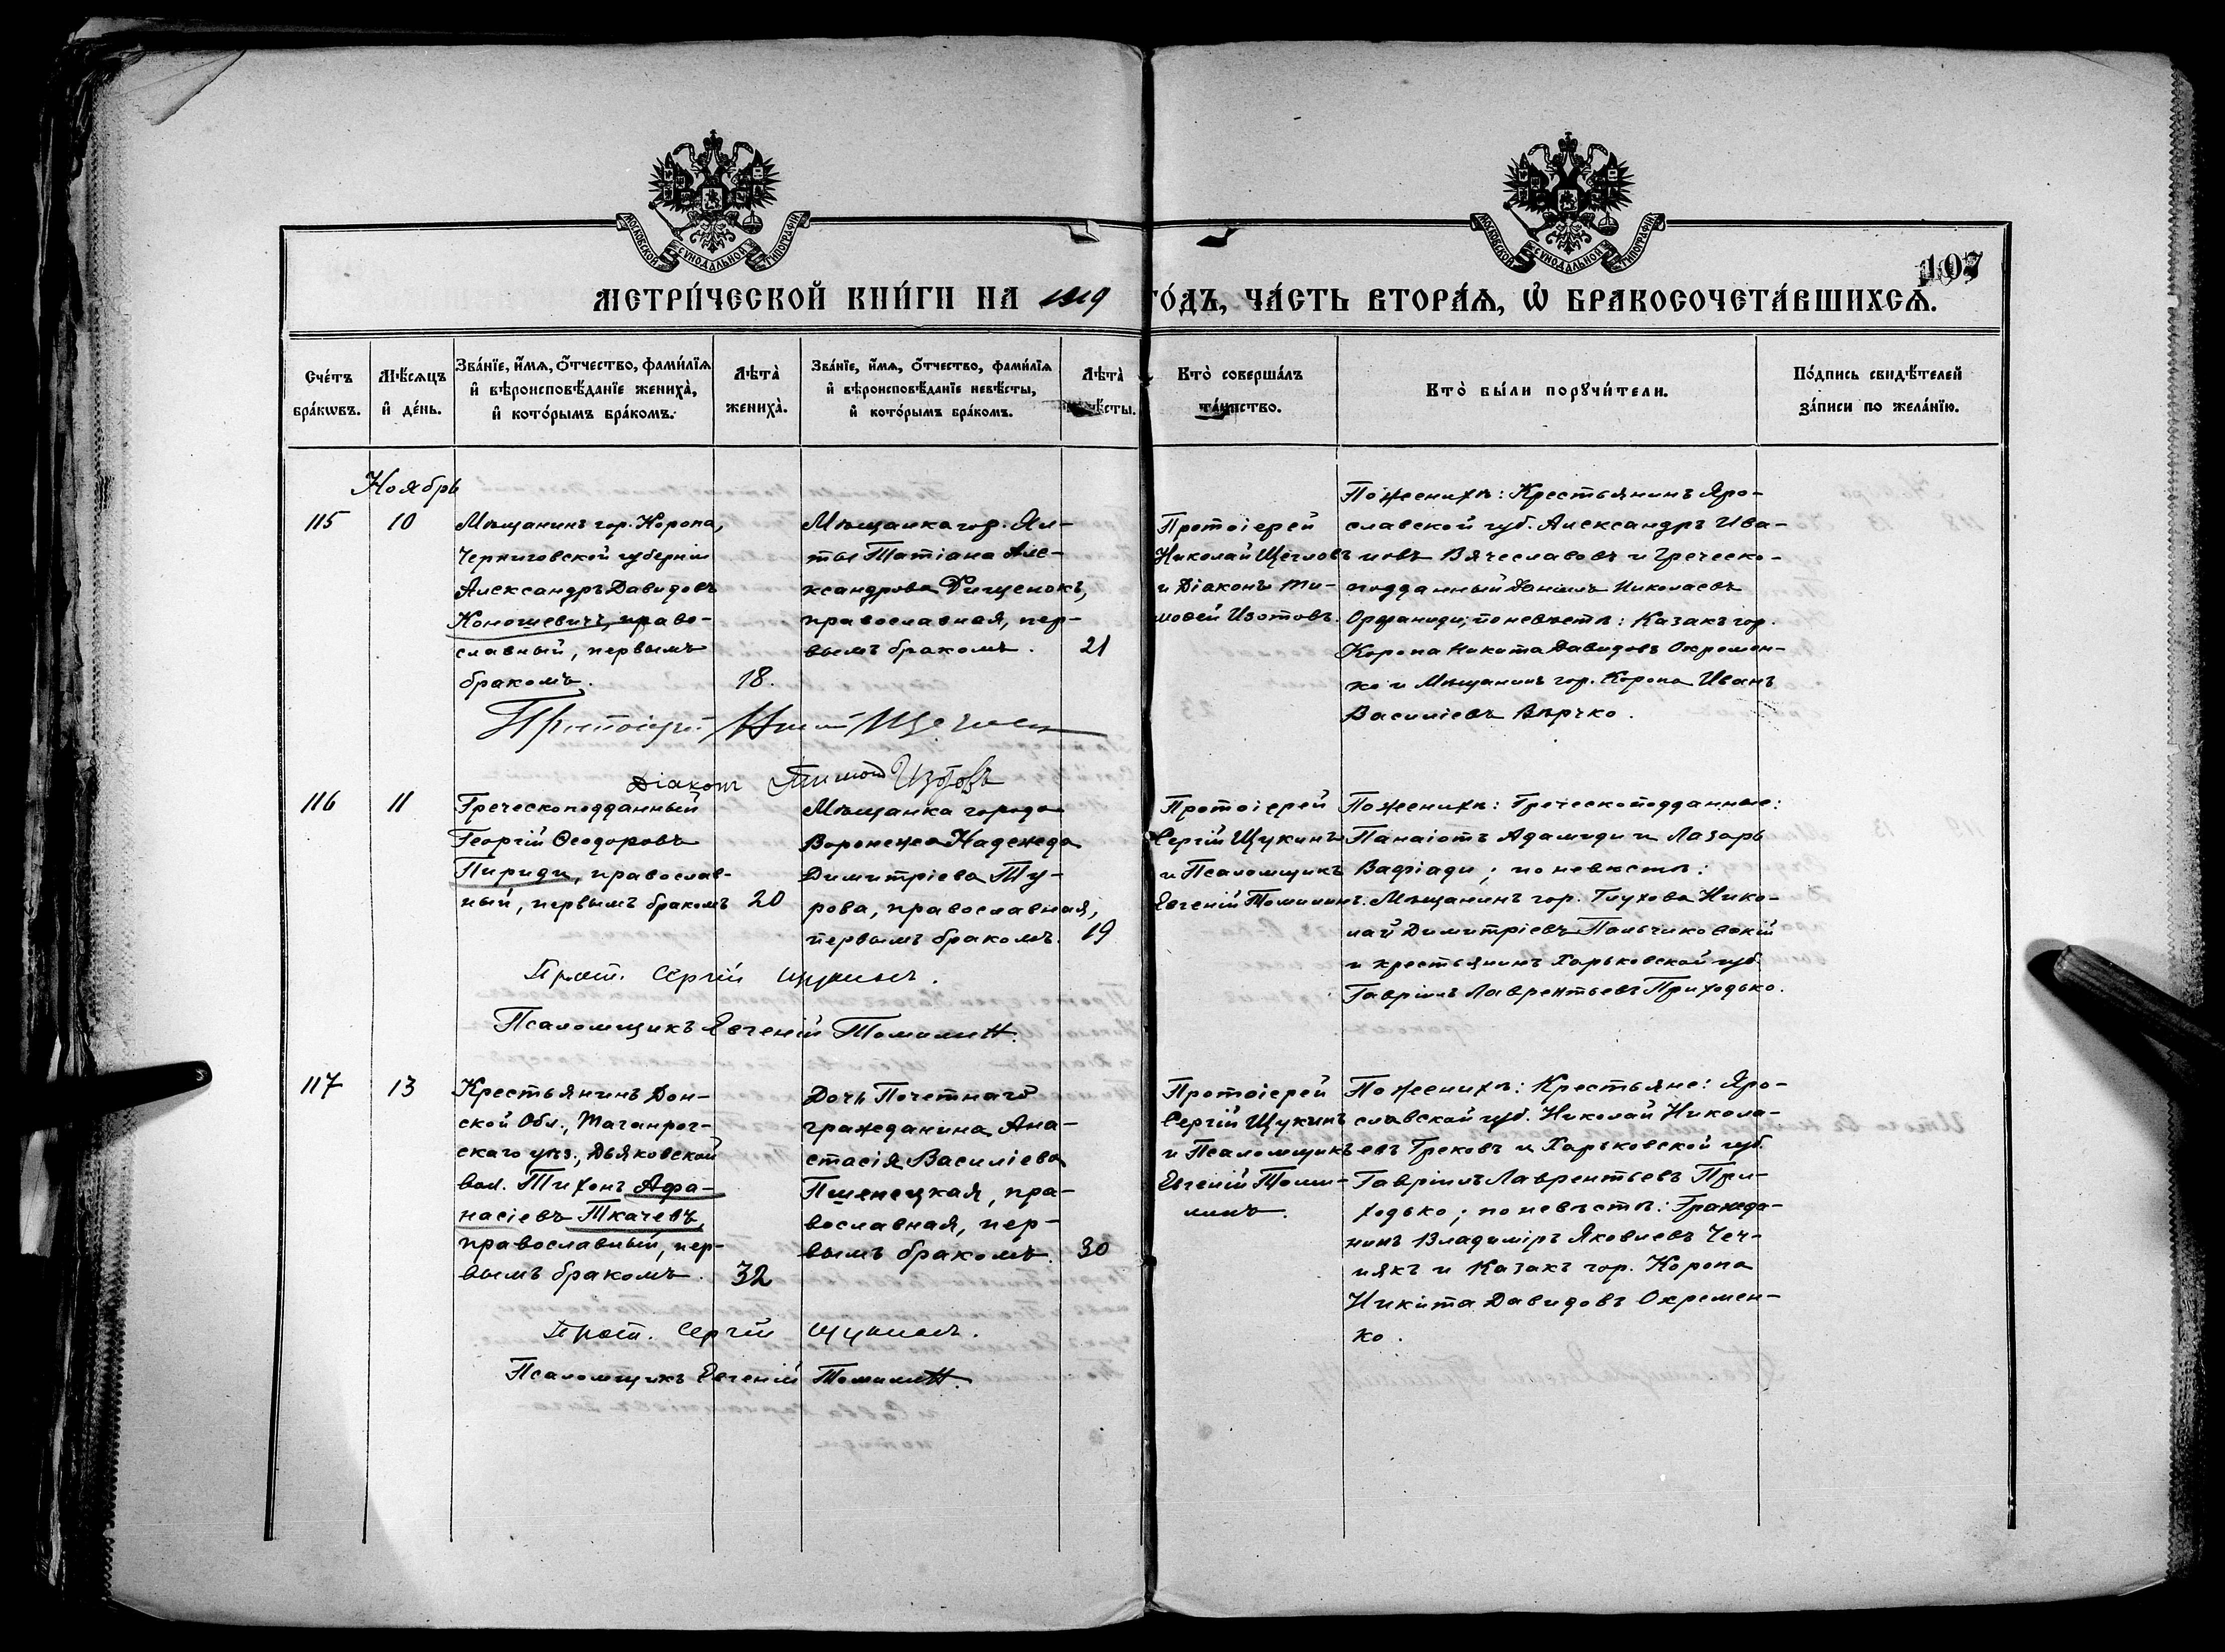 МОСКОВСКОЙ СѴНОДАЛЬНОЙ ТИПОГРАФІИ
МОСКОВСКОЙ СѴНОДАЛЬНОЙ ТИПОГРАФІИ
107
МЕТРИ́ЧЕСКОЙ КНИ́ГИ НА 1919 ГО́ДЪ, ЧА́СТЬ ВТОРА́Я, Ѡ БРАКОСОЧЕТА́ВШИХСѦ.
Сче́тъ
бра́кѡвъ.
Мѣ́сѧцъ
и҆ де́нь.
Зва́нїе, и҆́мѧ, ѻ҆́тчество, фами́лїѧ
и҆ вѣроисповѣ́данїе жениха̀,
и҆ кото́рымъ бра́комъ.
Лѣта̀
жениха̀.
Зва́нїе, и҆́мѧ, ѻ҆́тчество, фами́лїѧ
и҆ вѣроисповѣ́данїе невѣ́сты,
и҆ кото́рымъ бра́комъ.
Лѣта̀
невѣ́сты.
Кто̀ соверша́лъ
та́инство.
Кто̀ бы́ли порꙋчи́тели.
По́дпись свидѣ́телей
за́писи по жела́нїю.
Ноябрь
115
10
Мѣщанинъ гор. Коропа,
Черниговской губерніи
Александръ Давидовъ
Коношевичъ, право-
славный, первымъ
бракомъ.
18.
Мѣщанка гор. Ял-
ты Татіана Але-
ксандрова Рищенокъ,
православная, пер-
вымъ бракомъ.
21
Протоіерей
Николай Щегловъ
и Діаконъ Ти-
мофей Изотовъ.
По женихѣ: Крестьянинъ Яро-
славской губ. Александръ Ива-
новъ Вячеславовъ и Греческо-
подданный Даніилъ Николаевъ
Орфаниди; по невѣстѣ: Казакъ гор.
Коропа Никита Давидовъ Охремен-
ко и Мѣщанинъ гор. Коропа Иванъ
Василіевъ Вѣрчко.
Протоіерей
Діаконъ Тимоѳ Изотовъ
116
11
Греческоподданный
Георгій Ѳеодоровъ
Пириди, православ-
ный, первымъ бракомъ
20
Мѣщанка города
Воронежа Надежда
Димитріева Ту-
рова, православная,
первымъ бракомъ.
19
Протоіерей
Сергій Щукинъ
и Псаломщикъ
Евгеній Томилинъ.
По женихѣ: Греческоподданные:
Панаіотъ Адамиди и Лазарь
Вафіади; по невѣстѣ:
Мѣщанинъ гор. Глухова Нико-
лай Димитріевъ Пальчиковскій
и крестьянинъ Харьковской губ.
Гавріилъ Лаврентьевъ Приходько.
Прот. Сергій Щукинъ.
Псаломщикъ Евгеній Томилин.
117
13
Крестьянинъ Дон-
ской Обл., Таганрог-
скаго уѣз., Дьяковской
вол. Тихонъ Афа-
насіевъ Ткачевъ,
православный, пер-
вымъ бракомъ.
32
Дочь Почетнаго
гражданина Ана-
стасія Василіева
Пшенецкая, пра-
вославная, пер-
вымъ бракомъ.
30
Протоіерей
Сергій Щукинъ
и Псаломщикъ
Евгеній Томи-
линъ.
По женихѣ: Крестьяне: Яро-
славской губ. Николай Никола-
евъ Грековъ и Харьковской губ.
Гавріилъ Лаврентьевъ При-
ходько; по невѣстѣ: Гражда-
нинъ Владиміръ Яковлевъ Чер-
някъ и Казакъ гор. Коропа
Никита Давидовъ Охремен-
ко.
Прот. Сергій Щукинъ.
Псаломщикъ Евгеній Томилин.